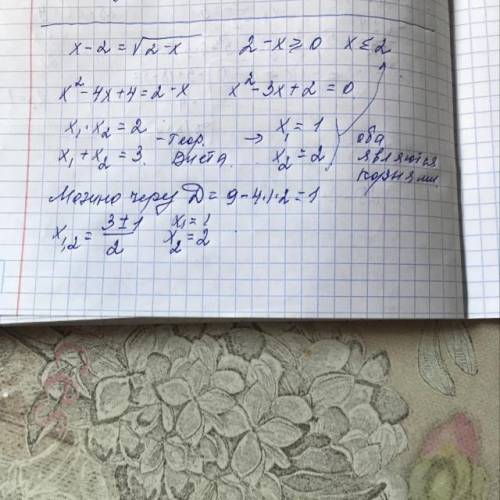 x-2=√2-x 2-x≥0 x≤2
x²-4x+4=2-x x²-3x+2=0
x₁·x₂=2 -теор. → x₁=1 оба
x₁+x₂=3 Виета. x₂=2 являются корнями.
Можно через D=9-4·1·2=1
x₁,₂=3±1/2 x₁=1
x₂=2